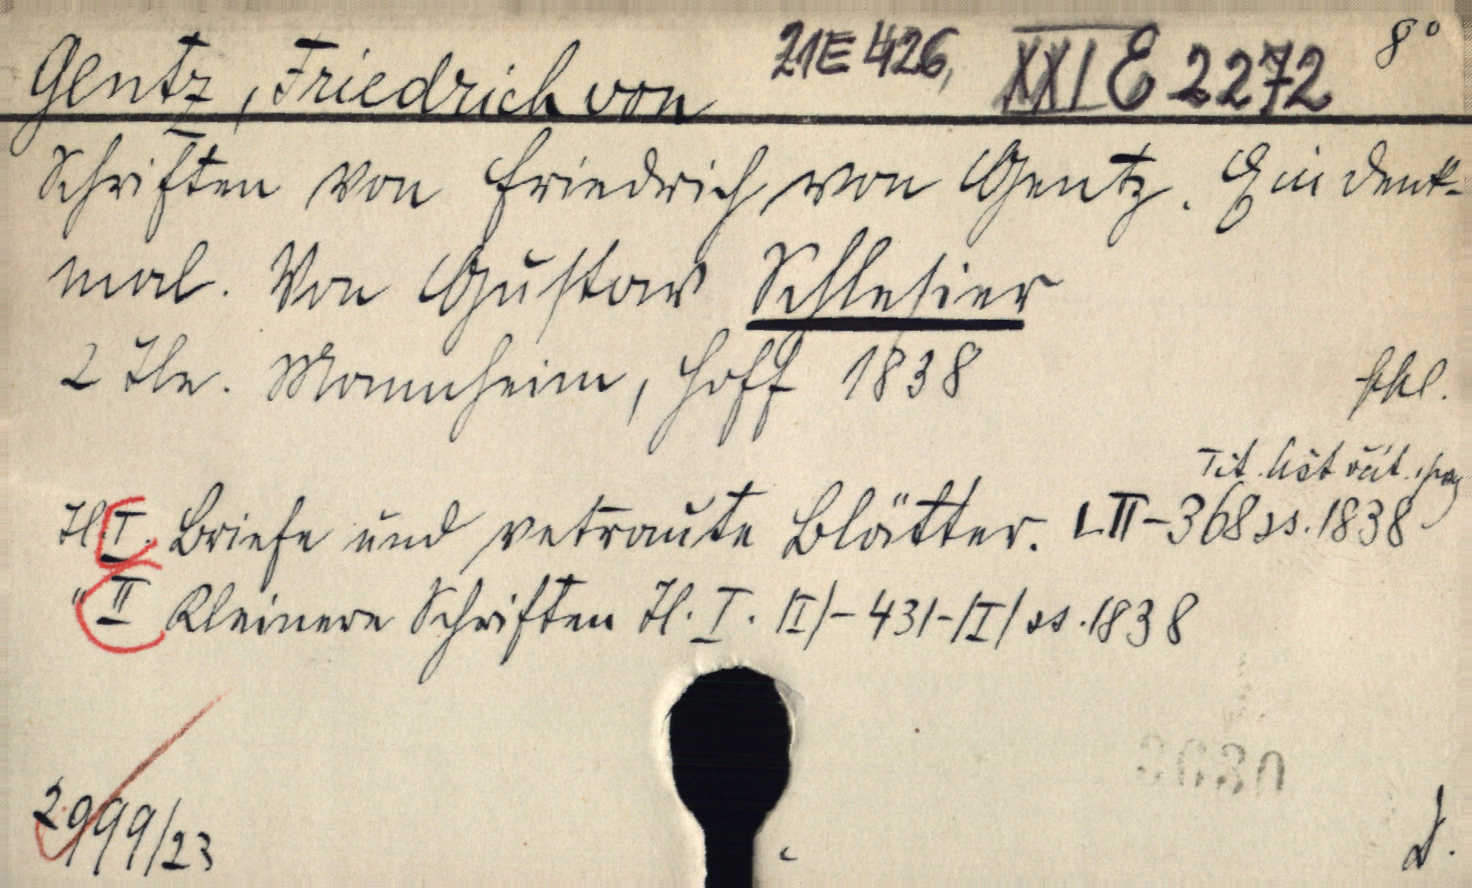 Gentz, Friedrich von 21E 426, XXI E 2272 8°
Schriften von Friedrich von Gentz. Ein Denk-
mal. Von Gustav Schlesier
2 Tle. Mannheim, Hoff 1838
Tit. list
Tl. I. Briefe und vetraute Blätter. LII-368 ss. 1838
" II Kleinere Schriften Tl. I. |I|-431-|I| ss. 1838
2999/23